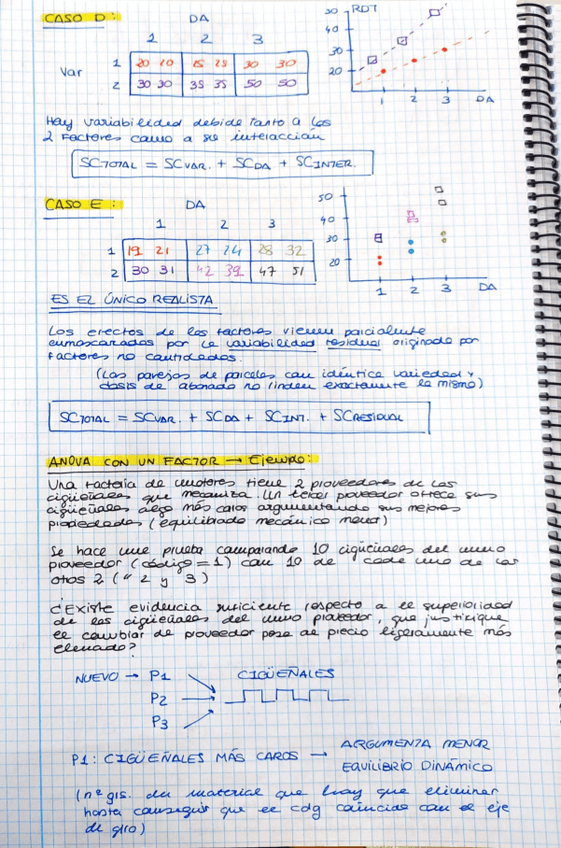 CASO D: DA
1 2 3
Var 1 20 20 25 25 30 30
2 30 30 35 35 50 50
RDT
50
40
30
20
1 2 3 DA
Hay variabilidad debida tanto a los
2 factores como a su interacción
SCTOTAL = SCVAR. + SCDA + SCINTER.
CASO E: DA
1 2 3
1 19 21 27 24 28 32
2 30 31 42 39 47 51
50
40
30
20
1 2 3 DA
ES EL ÚNICO REALISTA
Los efectos de los factores vienen parcialmente
enmascarados por la variabilidad residual originada por
factores no controlados.
(Las parejas de parcelas con idéntica variedad y
dosis de abonado no rinden exactamente lo mismo)
SCTOTAL = SCVAR. + SCDA + SCINT. + SCRESIDUAL
ANOVA CON UN FACTOR → Ejemplo:
Una factoría de motores tiene 2 proveedores de los
cigüeñales que mecaniza. Un tercer proveedor ofrece sus
cigüeñales algo más caros argumentando sus mejores
propiedades (equilibrado mecánico menor)
Se hace una prueba comparando 10 cigüeñales del nuevo
proveedor (código = 1) con 10 de cada uno de los
otros 2 (" 2 y 3)
¿Existe evidencia suficiente respecto a la superioridad
de los cigüeñales del nuevo proveedor, que justifique
el cambiar de proveedor pese al precio ligeramente más
elevado?
NUEVO → P1 CIGÜEÑALES
P2
P3
P1: CIGÜEÑALES MÁS CAROS → ARGUMENTA MENOR
EQUILIBRIO DINÁMICO
(nº grs. de material que hay que eliminar
hasta conseguir que el cdg coincida con el eje
de giro)